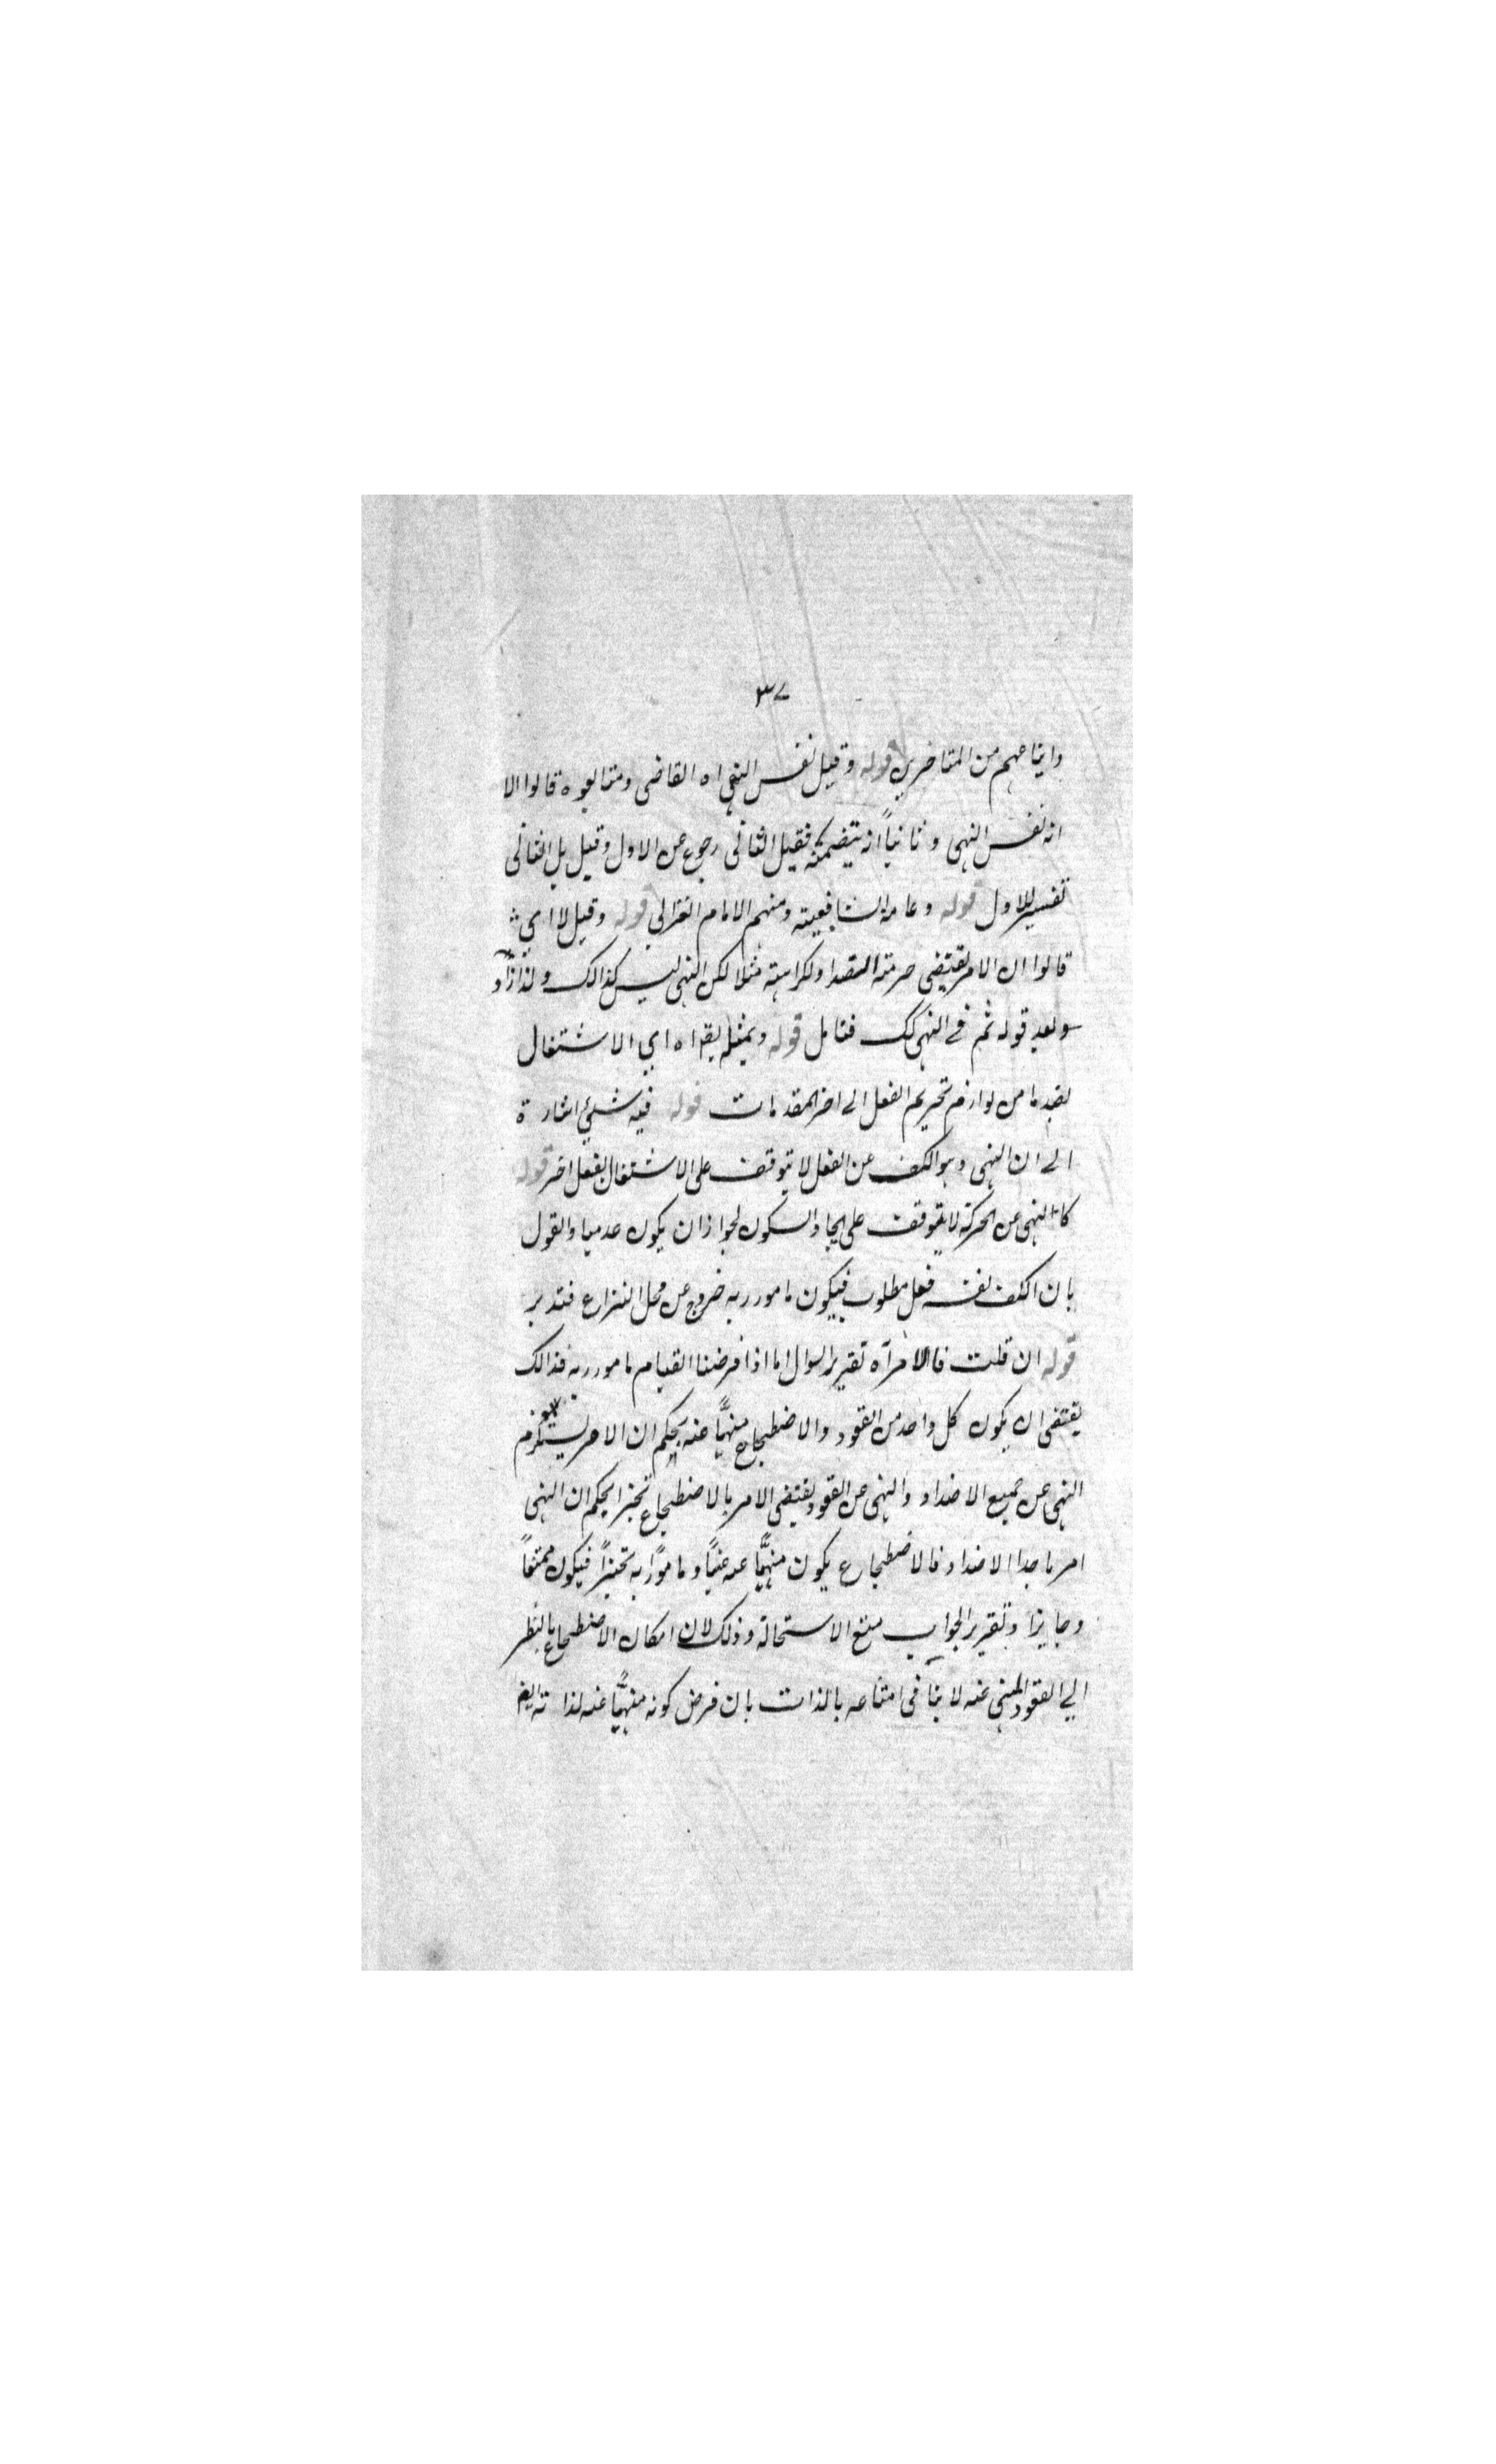 ٣٧
واتباعهم من المتاخرين قوله وقيل نفس النهى اه القاضى ومتابعوه قالوا الا
انه نفس النهى وثانياً انه يتضمنه فقيل الثانى رجوع عن الاول وقيل بل الثانى
تفسير للاول قوله وعامة الشافعية ومنهم الامام الغزالى قوله وقيل لا اي
قالوا ان الامر يقتضى حرمة الضد او كراهته مثلا لكن النهى ليس كذالك ولذا زاد
وبعد قوله ثم فى النهى كك فتامل قوله وبمثله يقرا ه اي الاشتغال
بضد ما من لوازم تحريم الفعل الى اخر المقدمات قوله فيه شيئ اشارة
الى ان النهى وهو الكف عن الفعل لا يتوقف على الاشتغال بفعل اخر قوله
كالنهى عن الحركة لا يتوقف على ايجاد السكون لجواز ان يكون عدميا والقول
بان الكف نفسه فعل مطلوب فيكون مامور به خروج عن محل النزاع فتدبر
قوله ان قلت فالامر آه تقرير السوال اما اذا فرضنا القيام مامور به فذالك
يقتضى ان يكون كل واحد من القعود والاضطجاع منهيًّا عنه بحكم ان الامر يستلزم
النهى عن جميع الاضداد والنهى عن القعود يقتضى الامر بالاضطجاع تخيرا بحكم ان النهى
امر باحد الاضداد فالاضطجاع يكون منهيًّا عنه عيناً ومامورًا به تخييراً فيكون ممتنعاً
وجايزا وتقرير الجواب منع الاستحالة وذلك لان امكان الاضطجاع بالنظر
الى القعود المنهى عنه لا ينافى امتناعه بالذات بان فرض كونه منهيًّا عنه لذاته